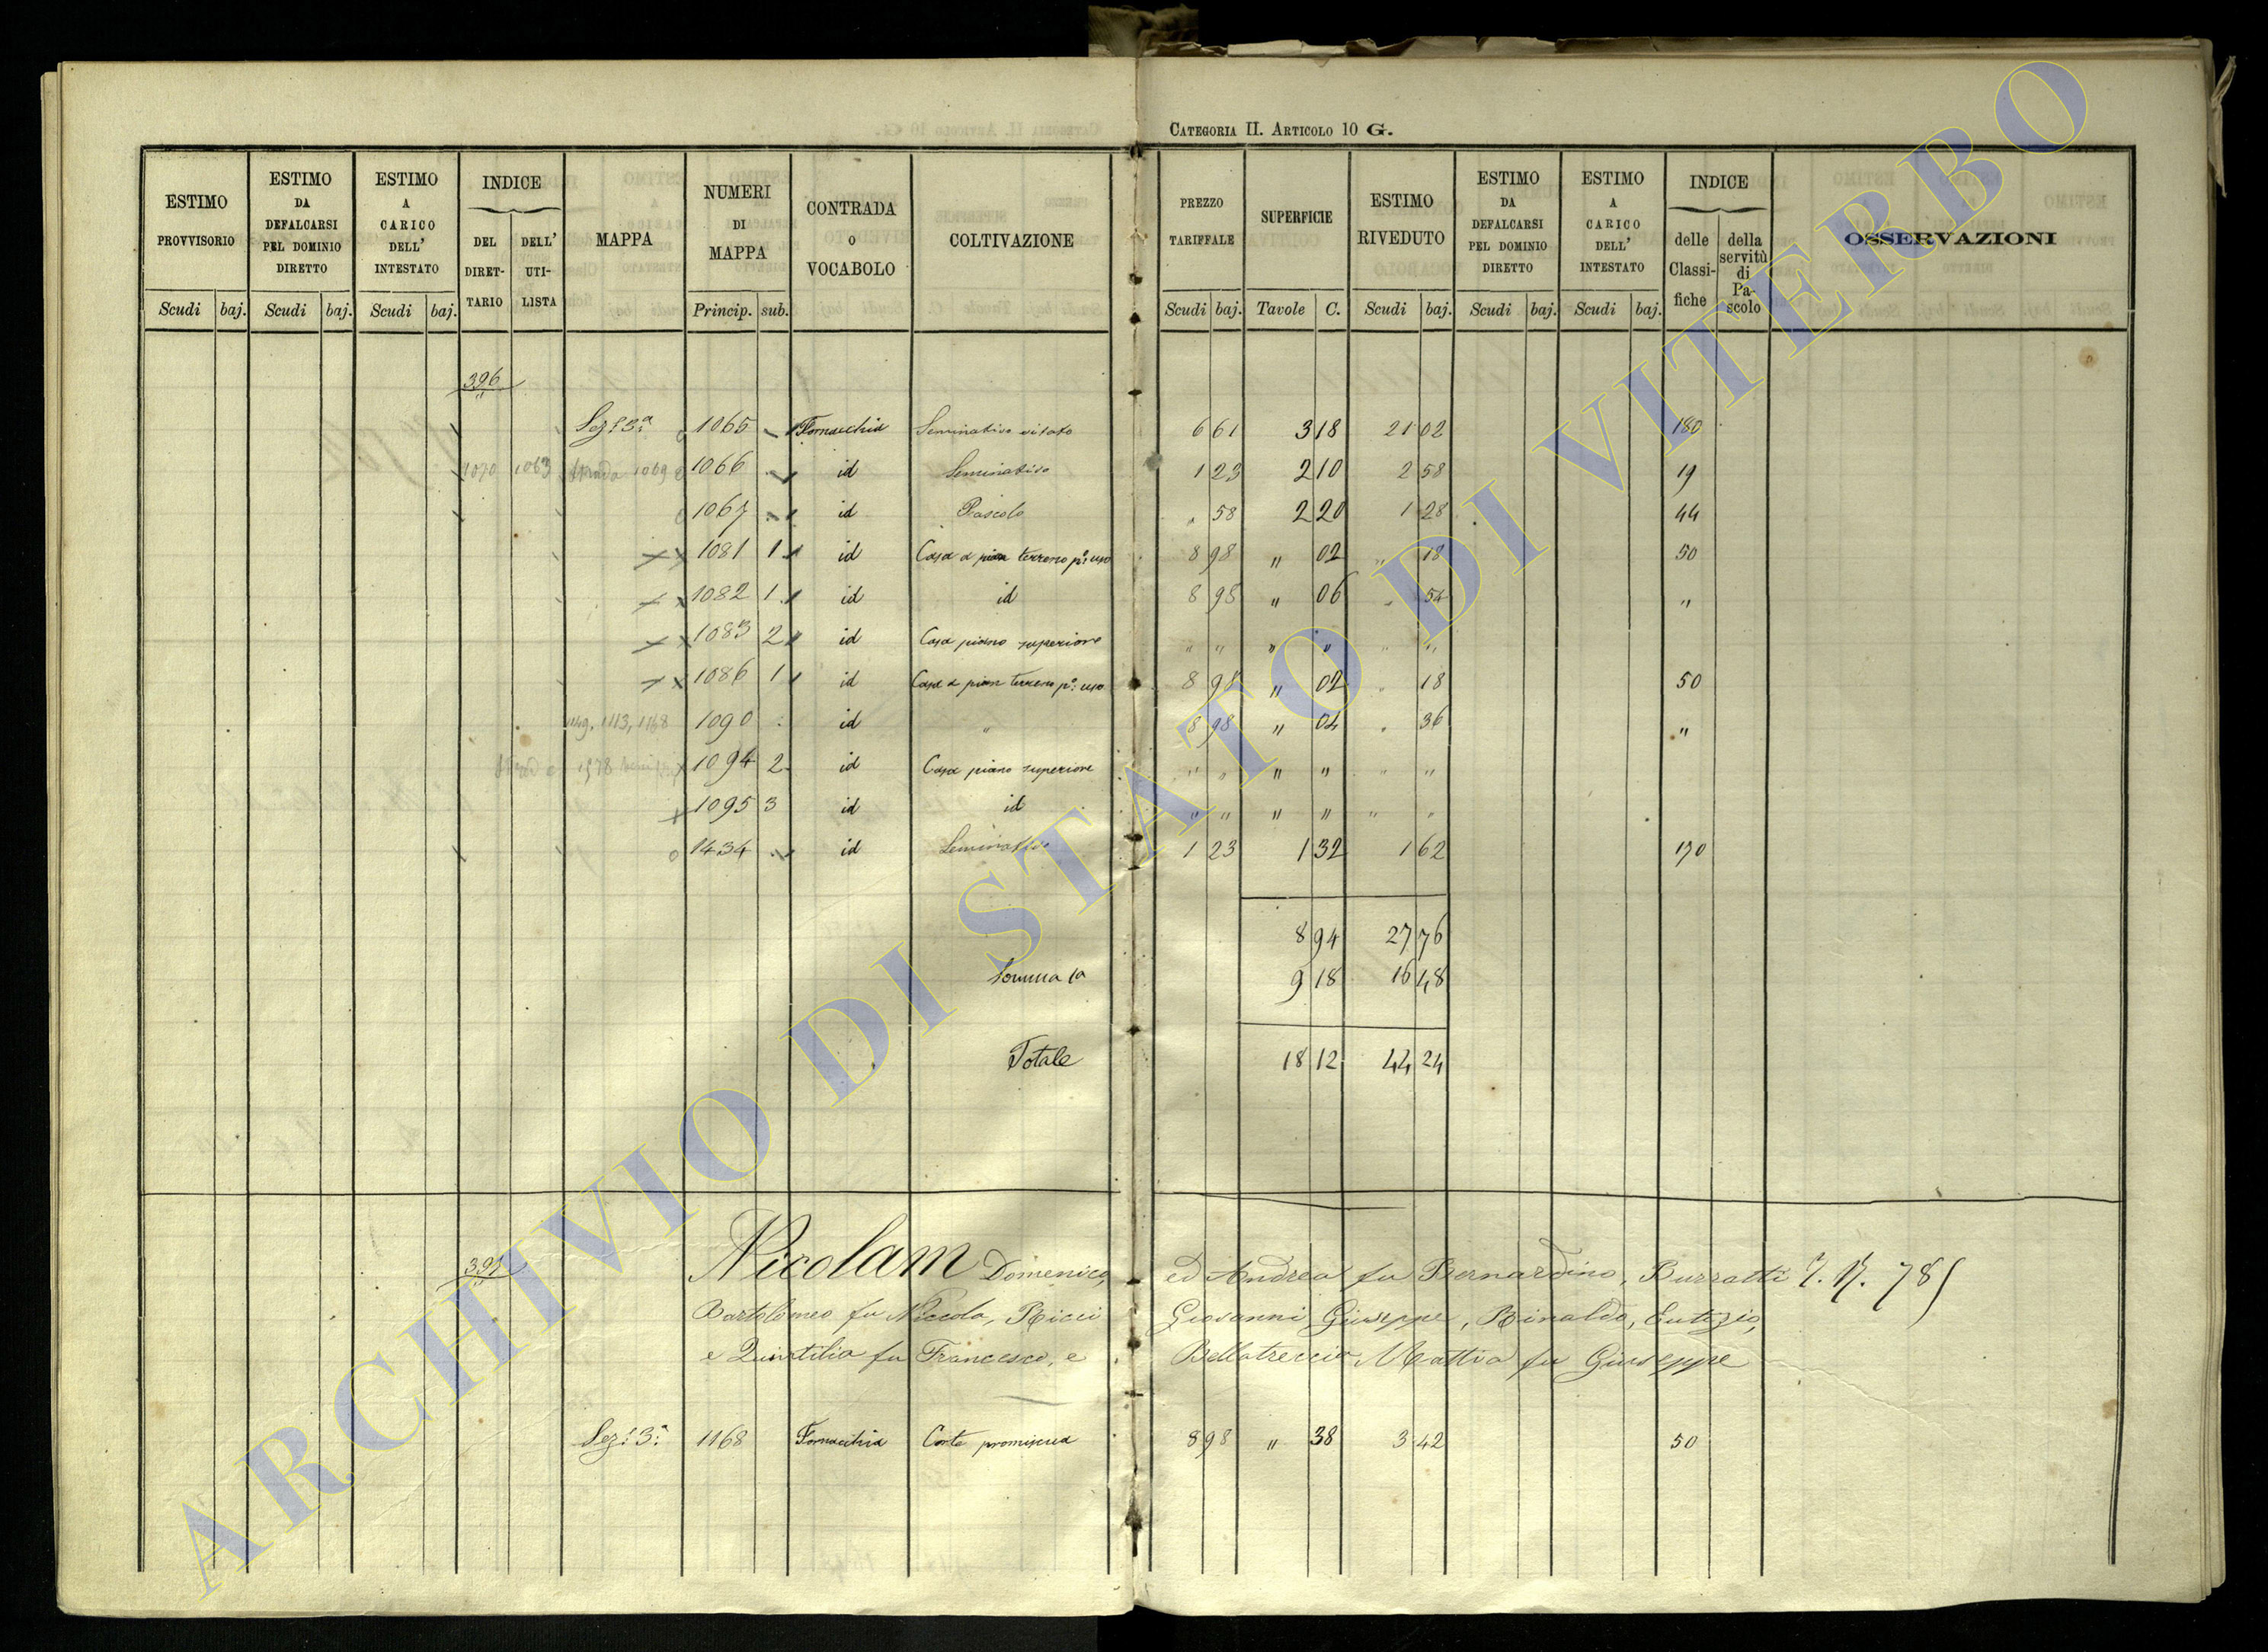 CATEGORIA II. ARTICOLO 10 G.
ESTIMO PROVVISORIO
ESTIMO DA DEFALCARSI PEL DOMINIO DIRETTO
ESTIMO A CARICO DELL' INTESTATO
INDICE
DEL DIRET-TARIO
DELL' UTI-LISTA
MAPPA
NUMERI DI MAPPA
CONTRADA O VOCABOLO
COLTIVAZIONE
PREZZO TARIFFALE
SUPERFICIE
ESTIMO RIVEDUTO
ESTIMO DA DEFALCARSI PEL DOMINIO DIRETTO
ESTIMO A CARICO DELL' INTESTATO
INDICE
delle Classi-fiche
della servitù di Pa-scolo
OSSERVAZIONI
Scudi baj. Scudi baj. Scudi baj. Princip. sub. Scudi baj. Tavole C. Scudi baj. Scudi baj. Scudi baj.
396
Sez. 3a 1065 Fornacchia Seminativo vitato 6 61 3 18 21 02 180
1070 1063 strada 1069 1066 id Seminativo 1 23 2 10 2 58 19
1067 id Pascolo " 58 2 20 1 28 44
1081 1 id Casa a pian terreno po: uso 8 98 " 02 " 18 50
1082 1 id id 8 98 " 06 " 54 "
1083 2 id Casa piano superiore " " " " " "
1086 1 id Casa a pian terreno po: uso 8 98 " 02 " 18 50
1113, 1168 1090 id " 8 98 " 04 " 36 "
1094 2 id Casa piano superiore " " " " " "
1095 3 id id " " " " " "
1434 id Seminativo 1 23 1 32 1 62 170
8 94 27 76
Somma 1a 9 18 16 48
Totale 18 12 44 24
397 Nicolam Domenico, ed Andrea fu Bernardino, Burratti
Bartolomeo fu Niccola, Ricci Giovanni, Giuseppe, Rinaldo, Eutizio,
e Quintilia fu Francesco, e Bellatreccia Mattia fu Giuseppe
Sez. 3a 1168 Fornacchia Corte promiscua 8 98 " 38 3 42 50
ARCHIVIO DI STATO DI VITERBO